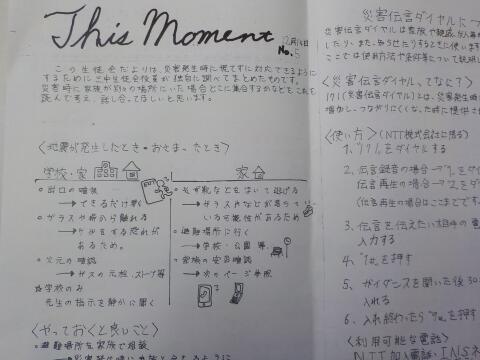 This Moment
12月16日
No.5
この生徒会だよりは、災害発生時に慌てずに対応できるように
するために三中生徒会役員が独自に調べてまとめたものです。
災害時に家族が別々の場所にいた場合どこに集合するかなどをこれを
読んで考え、話し合ってほしいと思います。
〈地震が発生したとき・おさまったとき〉
学校・家
○出口の確保
→できるだけ早く
○ガラスや塀から離れる
→ケガをする恐れが
あるため。
○火元の確認
→ガスの元栓、ストーブ等
☆学校のみ
先生の指示を静かに聞く
家
○必ず靴などをはいて逃げる
→ガラスやなどが落ちて
いる可能性があるため
○避難場所に行く
→学校・公園 等
○家族の安否確認
→次のページ参照
〈やっておくと良いこと〉
○避難場所を家族で相談
災害伝言ダイヤルにつ
災害伝言ダイヤルは家族や親戚
したり、また、知らせたりするときに使います
ここでは使用方法や条件等について説明し
〈災害伝言ダイヤルってなに？〉
171(災害伝言ダイヤル)とは、災害発生時に
増加し、つながりにくくなった時に提供さ
〈使い方〉(NTT株式会社に限る)
1. "171"をダイヤルする
2. 伝言録音の場合→"1"をダイ
伝言再生の場合→"2"をダイ
(伝言再生の場合はここまでです
3. 伝言を伝えたい相手の電
入力する
4. "1"を押す
5. ガイダンスを聞いた後30
入れる
6. 入れ終わったら"9"を押す
〈利用可能な電話〉
NTT加入電話・INSネ